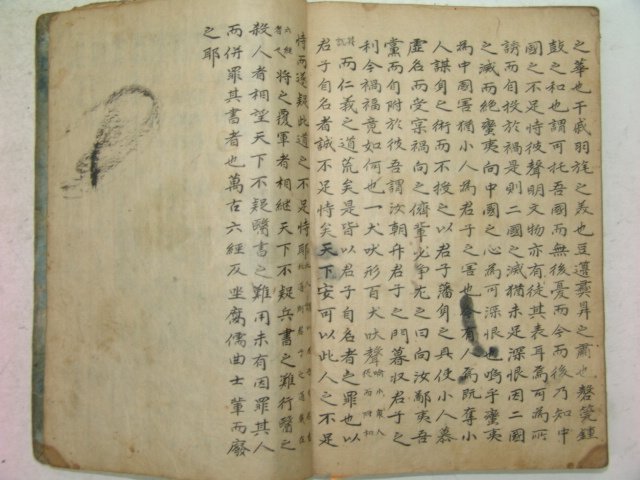 之華也干戚羽旄之美也豆籩彛鼎之肅也磬筦鍾
鼓之和也謂可托吾國而無後憂而今而後乃知中
國之不足恃彼聲明文物亦有徒其表耳為可為所
誘而自投於禍是則二國之滅猶未足深恨因二國
之滅而絕蠻夷向中國之心為可深恨也嗚乎蠻夷
為中國害猶小人為君子之害也人為旣奪小
人謀身之術而不授之以君子藩身之具使小人慕
虛名而受禍向之儕輩必爭先之曰向汝鄙夷吾
黨而自附於彼吾謂汝朝升君子之門暮収君子之
利今禍福竟如何也一犬吠形百犬吠聲
而仁義之道荒矣是皆以君子自名者之罪也以
君子自名者誠不足恃矣天下安可以此人之不足
恃而遂疑此道之不足恃耶
將之覆軍者相継天下不疑兵書之難行醫之
殺人者相望天下不疑醫書之難用未有因罪其人
而併罪其書者也萬古六經反坐腐儒曲士輩而廢
之耶